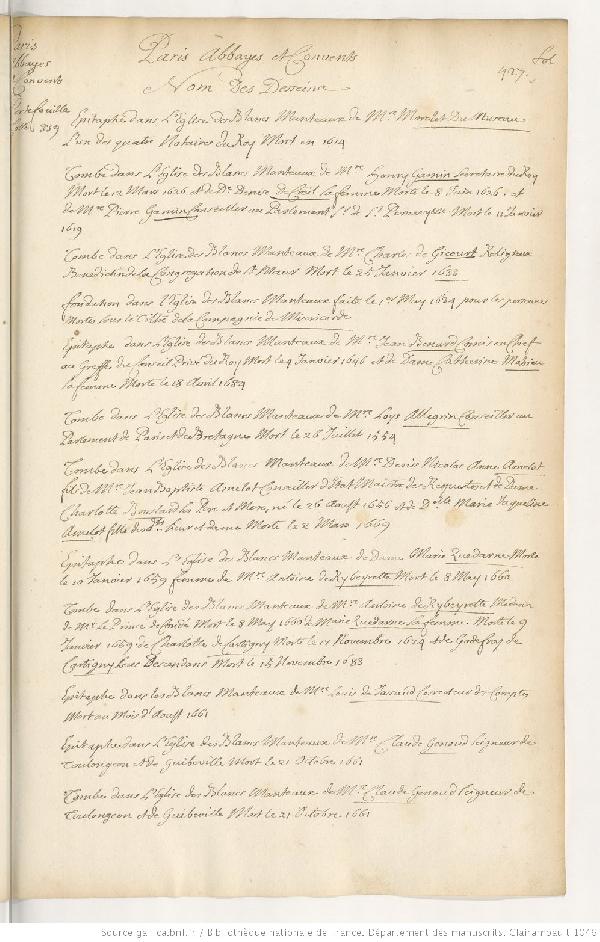 Paris
Abbayes
et Convents
Portefeuille
339
Paris Abbayes et Convents
Nom des Desseins
fol
427.
Epitaphe dans L'Eglise des Blancs Manteaux de Mre Morelet Du Museau
L'un des quatre Notaires du Roy Mort en
Tombe dans L'Eglise des Blancs Manteaux de Mre Henry Gamin Secretaire du Roy
Mort le 12 Mars 1626 et de De Denise de Creil sa femme Morte le 8 Juin 1626, et
de Mre Pierre Gamin Conseiller au Parlement Sr de St Mort le Janvier
1619
Tombe dans L'Eglise des Blancs Manteaux de Mre Charles de Gicourt Religieux
Benedictin de la Congregation de St Maur Mort le 25 Janvier 1688
fondation dans L'Eglise des Blancs Manteaux faite le 1er May 1634 pour les personnes
Mortes sous le Titre de la Compagnie de Misericorde
Epitaphe dans L'Eglise des Blancs Manteaux de Mre Jean Benard Commis en Chef
au Greffe du Conseil Privé du Roy Mort le 9 Janvier 1646 et de Dame Catherine Mahieu
sa femme Morte le 18 Avril 1654
Tombe dans L'Eglise des Blancs Manteaux de Mre Loys Allegrin Conseiller au
Parlement de Paris et de Bretagne Mort le 26 Juillet 1554
Tombe dans L'Eglise des Blancs Manteaux de Mre Denis Nicolas Anne Amelot
fils de Mre Jean Baptiste Amelot Conseiller d'Etat Maitre des Requestes et de Dame
Charlotte ses Pere et Mere, né le 26 Aoust 1656 et de Dlle Marie Jacqueline
Amelot fille desdts Sieur et dame Morte le 2 Mars 1669
Epitaphe dans L'Eglise des Blancs Manteaux de Dame Marie Morte
le 10 Janvier 1659 femme de Mre Antoine de Rybeyrette Mort le 8 May 1660
Tombe dans L'Eglise des Blancs Manteaux de Mre Antoine de Rybeyrette Medecin
de Mr Le Prince de Condé Mort le 8 May 1660 de Marie sa femme Morte le 9
Janvier 1659 de Charlotte de Cartigny Morte le 11 Novembre 1674 et de Godefroy de
Cartigny leurs Descendans Mort le 15 Novembre 1683
Epitaphe dans les Blancs Manteaux de Mre Louis de Tassaud Correcteur des Comptes
Mort au Mois d'Aoust 1661
Epitaphe dans L'Eglise des Blancs Manteaux de Mre Claude Genoud Seigneur de
Toulongeon et de Guibeville Mort le 21 Octobre 1661
Tombe dans L'Eglise des Blancs Manteaux de Mre Claude Genoud Seigneur de
Toulongeon et de Guibeville Mort le 21 Octobre 1661
Source gallica.bnf.fr / Bibliothèque nationale de France. Département des manuscrits. Clairambault 1046